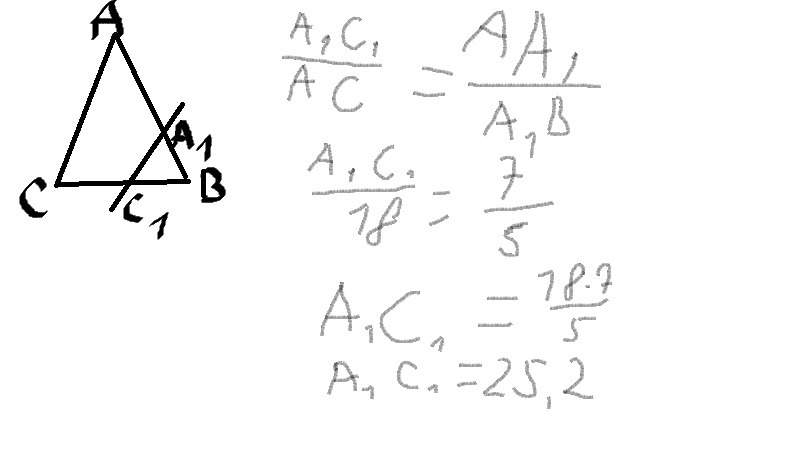 A
A₁
C
B
C₁
A₁C₁ / AC = AA₁ / A₁B
A₁C₁ / 18 = 7 / 5
A₁C₁ = 18·7 / 5
A₁C₁ = 25,2